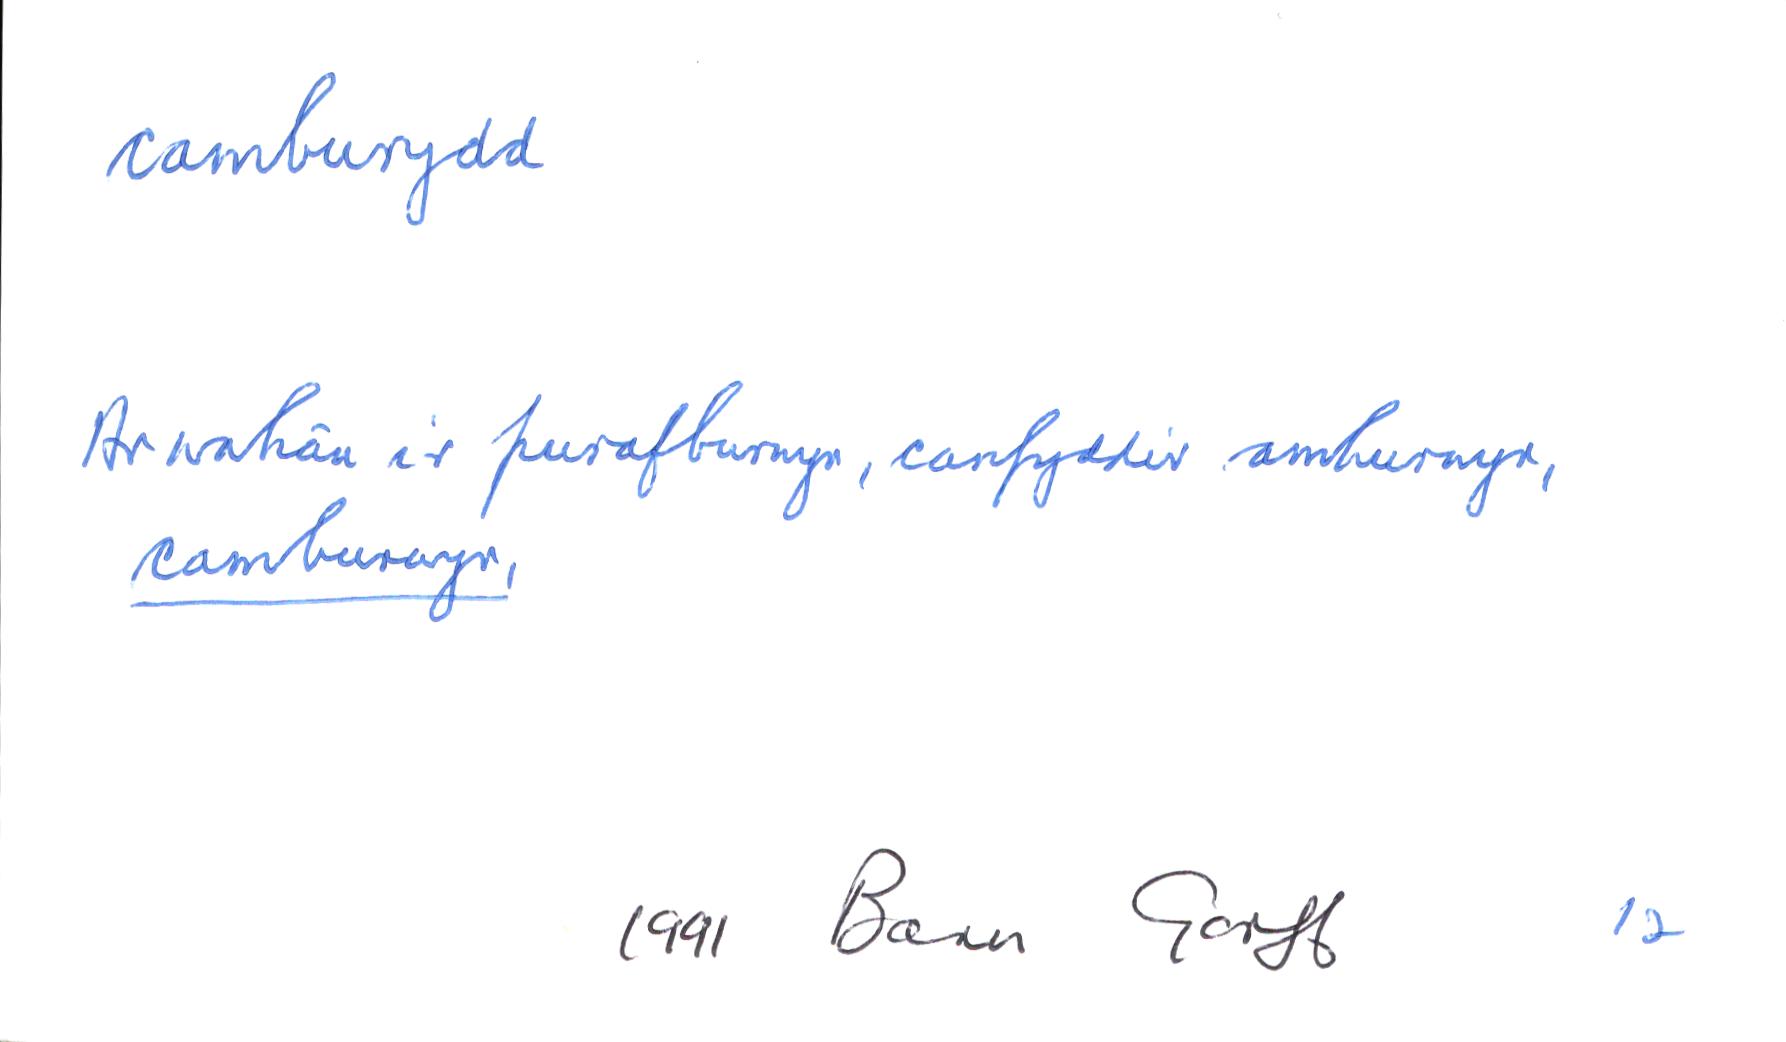 camburydd
Ar wahân i'r purafburwyr, canfyddir amhurwyr,
camburwyr,
1991 Baner Gorff 12